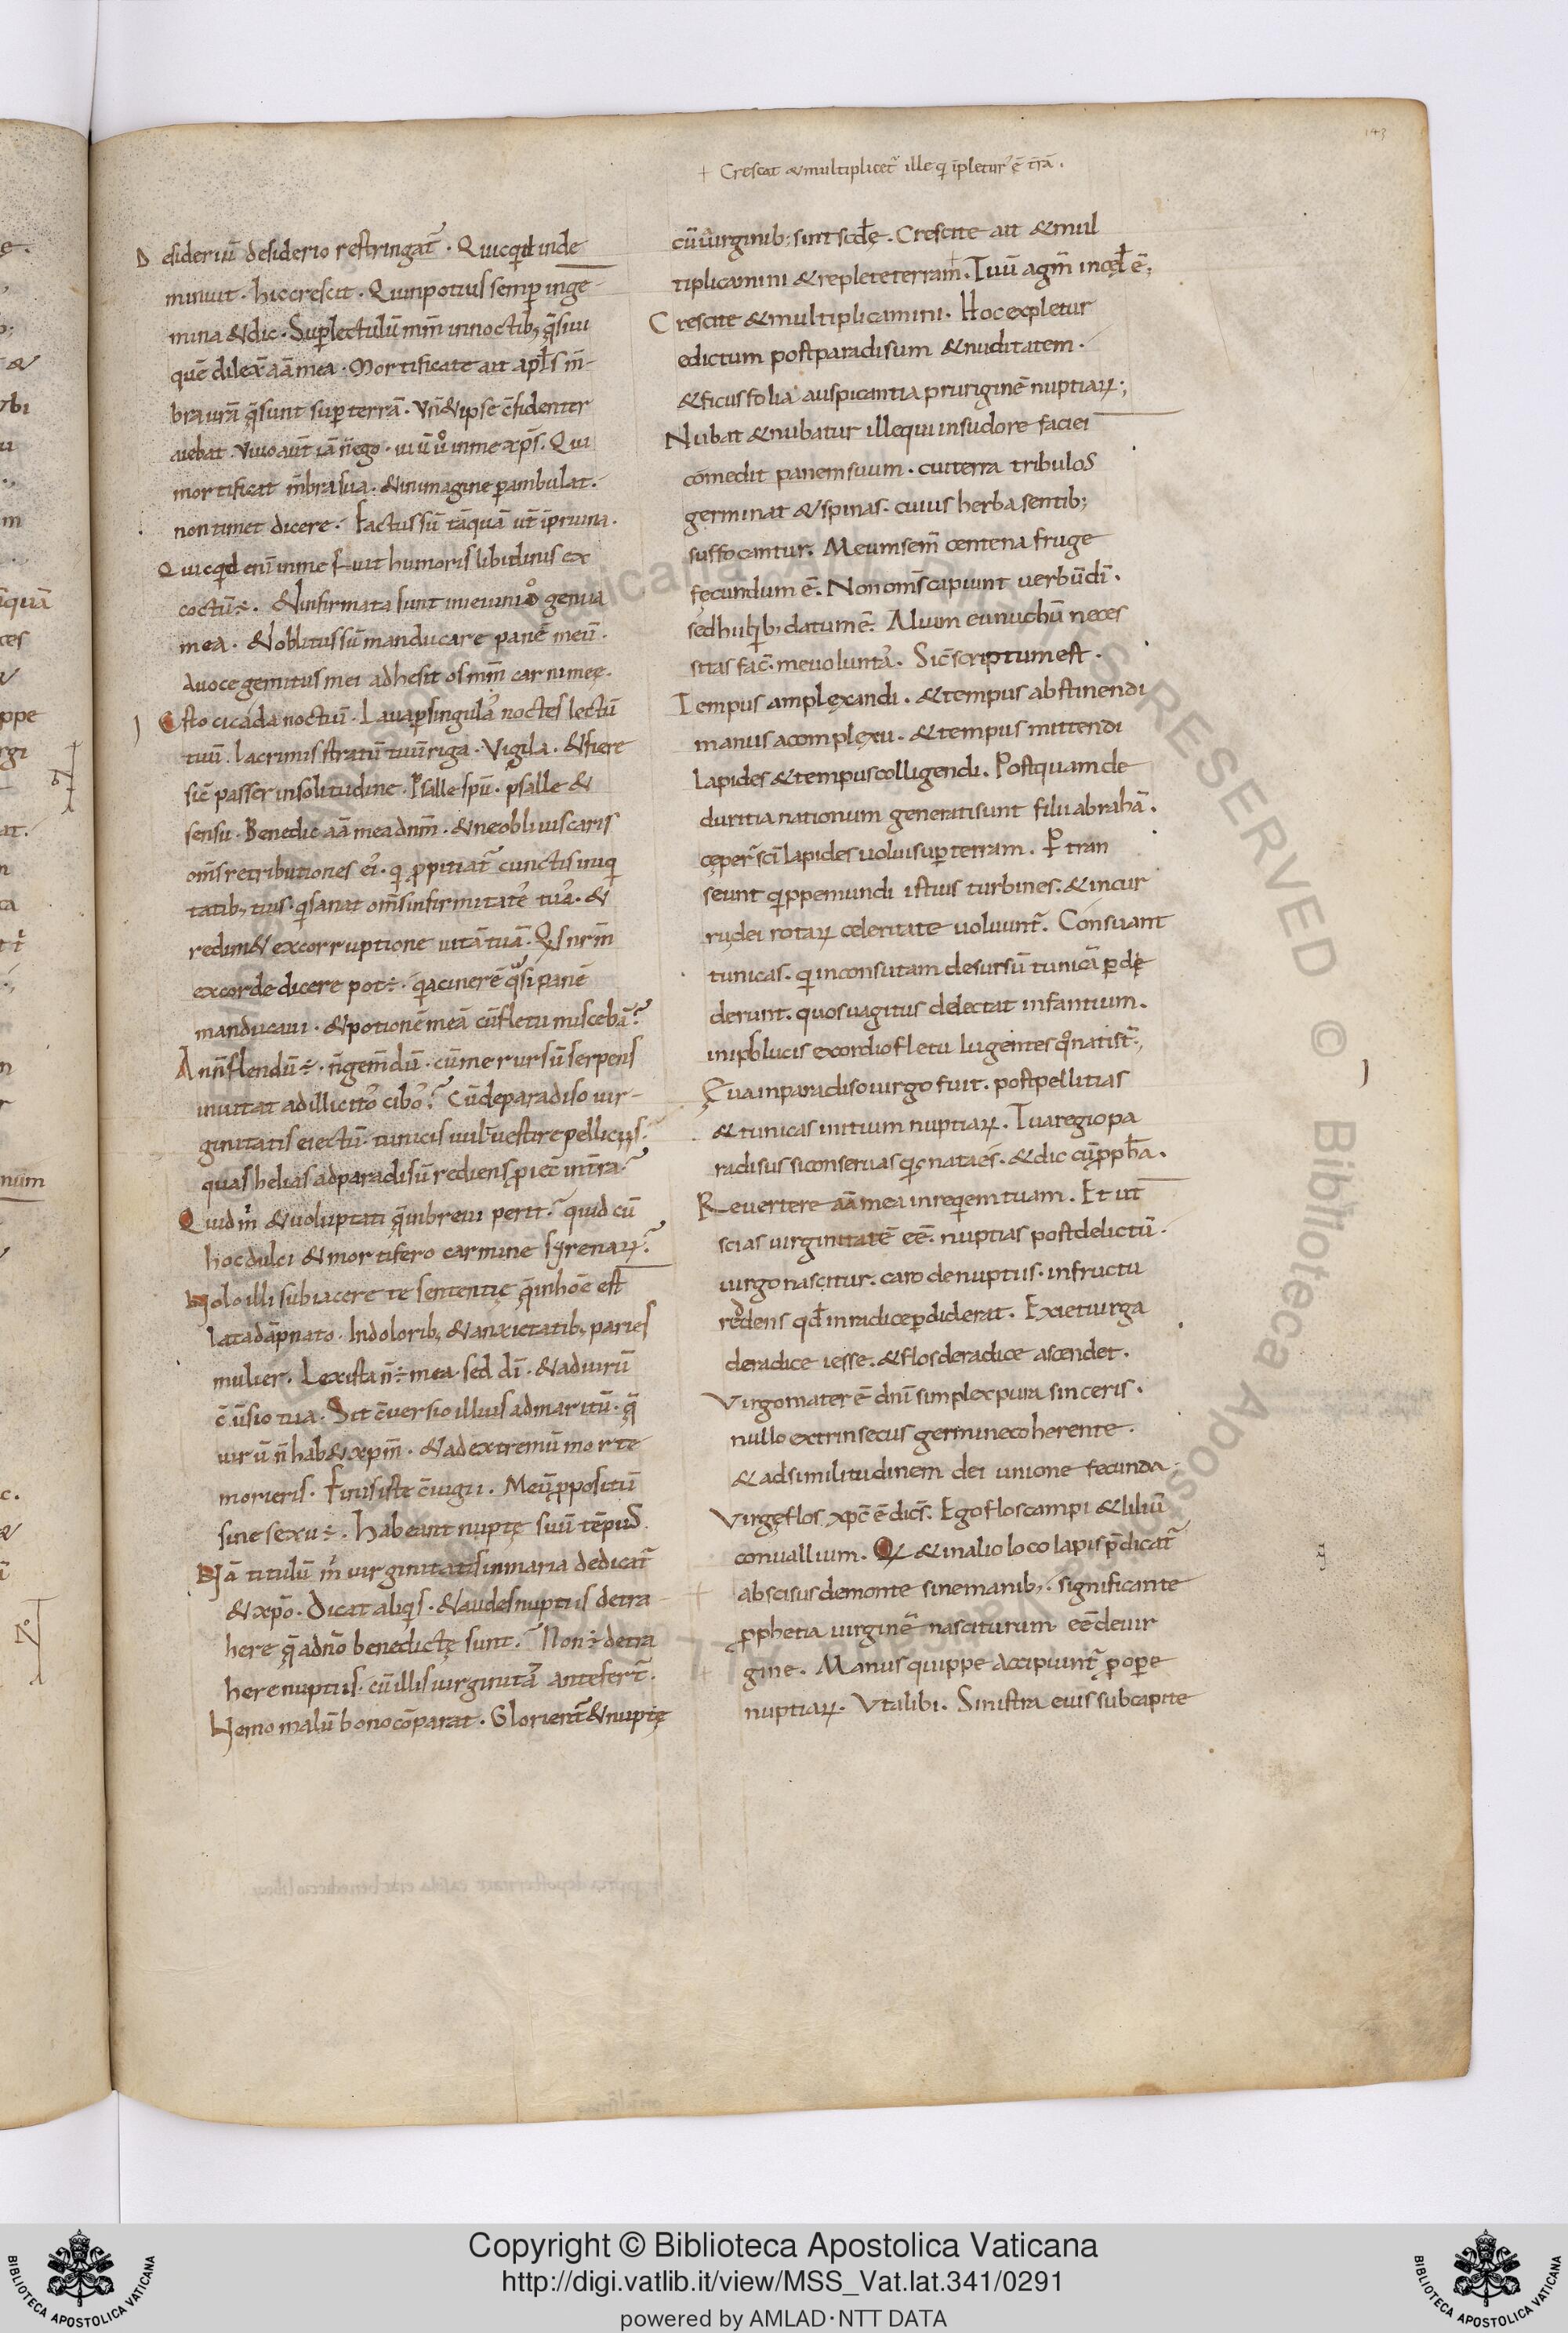 143
+ Crescat & multiplicet᷑ ille q̇ īpletur᷑ ē trā.
Desideriū desiderio restringat᷑. Quicqd inde
minuit. hic crescit. Quin potius semp inge
mina & dic. Sup lectulū mm̄ in noctib; q̄siui
quē dilex̄ aīa mea. Mortificate ait apls m̄
bra ura q̄ sunt sup terrā. Vn̄ & ipse c̄fidenter
aiebat. Viuo aut̄ iā n̄ ego. uiū u° in me xp̄s. Qui
mortificat m̄bra sua. & in imagine pambulat.
non timet dicere. Factus sū tāquā ut̄ ī pruina.
Quicqd enī in me fuit humoris libidinis ex
coctū ÷. & infirmata sunt in ieiunio genua
mea. & oblitus sū manducare panē meū.
A uoce gemitus mei adhesit os mm̄ carni meę.
Esto cicada noctiū. Laua p singulas noctes lectū
tuū. lacrimis stratū tuū riga. Vigila. & fiere
sic passer in solitudine. Psalle spū. psalle &
sensu. Benedic aīa mea dnm̄. & ne obliuiscaris
om̄s retributiones ei᷑. q̇ ppitiat᷑ cunctis iniq
tatib; tuis. q̇ sanat om̄s infirmitates tuas. &
redimet ex corruptione uitā tuā. Qs nr̄m
ex corde dicere pot ÷. qa cinerē q̊si panē
manducaui. & potionē meā cū fletu miscebā?
An n̄ flendū ÷. n̄ gem̄dū. cū me rursū serpens
inuitat ad illicitos cibos? Cū de paradiso uir
ginitatis eiectū. tunicis uult uestire pelliciis.
quas helias ad paradisū rediens piec̄ in trā?
Quid m̊ & uoluptati q̄ in breui perit? quid cū
hoc dulci & mortifero carmine syrenaꝝ?
Nolo illi subiacere te sententię q̄ in hōē est
lata dāpnato. In dolorib; & anxietatib; paries
mulier. Lex ista n̄ ÷ mea. sed dī. & ad uirū
c̄uersio tua. Sit c̄uersio illius ad maritū. q̄
uirū n̄ hab& xpm̄. & ad extremū morte
morieris. Finis iste c̄iugii. Meū ppositū
sine sexu ÷. Habeant nuptę suū tēpus.
Nā titulū m̊ uirginitatis in maria dedicat᷑
& xpo. Dicat aliqs. & audes nuptiis detra
here q̄ a dn̄o benedictę sunt? Non ÷ detra
here nuptiis. cū illis uirginitas antefert᷑.
Nemo malū bono cōparat. Glorient᷑ & nuptę
cū uirginib; sint scdę. Crescite ait & mul
tiplicamini & replete terram. Tuū agm̄ in cęl ē;
Crescite & multiplicamini. Hoc expletur
edictum post paradisum & nuditatem.
& ficus folia auspicantia pruriginē nuptiaꝝ;
Nubat & nubatur ille qui in sudore faciei
comedit panem suum. cui terra tribulos
germinat & spinas. cuius herba sentib;
suffocantur. Meum sem̄ centena fruge
fęcundum ē. Non om̄s capiunt uerbū dī.
sed hi qib; datum ē. Alium eunuchū neces
sitas fac̄. me uoluntas. Sic scriptum est.
Tempus amplexandi. & tempus abstinendi
manus a complexu. & tempus mittendi
lapides & tempus colligendi. Postquam de
duritia nationum generati sunt filii abrahā.
cęper̄ sci lapides uolui sup terram. Ptran
seunt qippe mundi istius turbines. & in cur
ru dei rotaꝝ celeritate uoluunt᷑. Consuant
tunicas. q̇ inconsutam desursū tunicā pdi
derunt. quos uagitus delectat infantium.
in ipso lucis exordio fletu lugentes qd nati st̄;
Eua in paradiso uirgo fuit. post pellitias
& tunicas initium nuptiaꝝ. Tua regio pa
radisus. si conseruas qd nata es. & dic cū ppha.
Reuertere aīa mea in reqiem tuam. Et ut
scias uirginitatē ēē. nuptias post delictū.
uirgo nascitur. caro de nuptiis. in fructu
reddens qd in radice pdiderat. Exiet uirga
de radice iesse. & flos de radice ascendet.
Virgo mater ē dnī simplex pura sinceris.
nullo extrinsecus germine coherente.
& ad similitudinem dei unione fecunda;
Virgę flos xpc̄ ē dics̄. Ego flos campi & lilium
conuallium. Q & in alio loco lapis p̄dicat᷑
abscisus de monte sine manib;. significante
pphetia uirginē nasciturum ēē de uir
gine. Manus quippe accipiunt᷑ p opere
nuptiaꝝ. Vt alibi. Sinistra eius sub capite
Copyright © Biblioteca Apostolica Vaticana
http://digi.vatlib.it/view/MSS_Vat.lat.341/0291
powered by AMLAD·NTT DATA
BIBLIOTECA APOSTOLICA VATICANA
BIBLIOTECA APOSTOLICA VATICANA